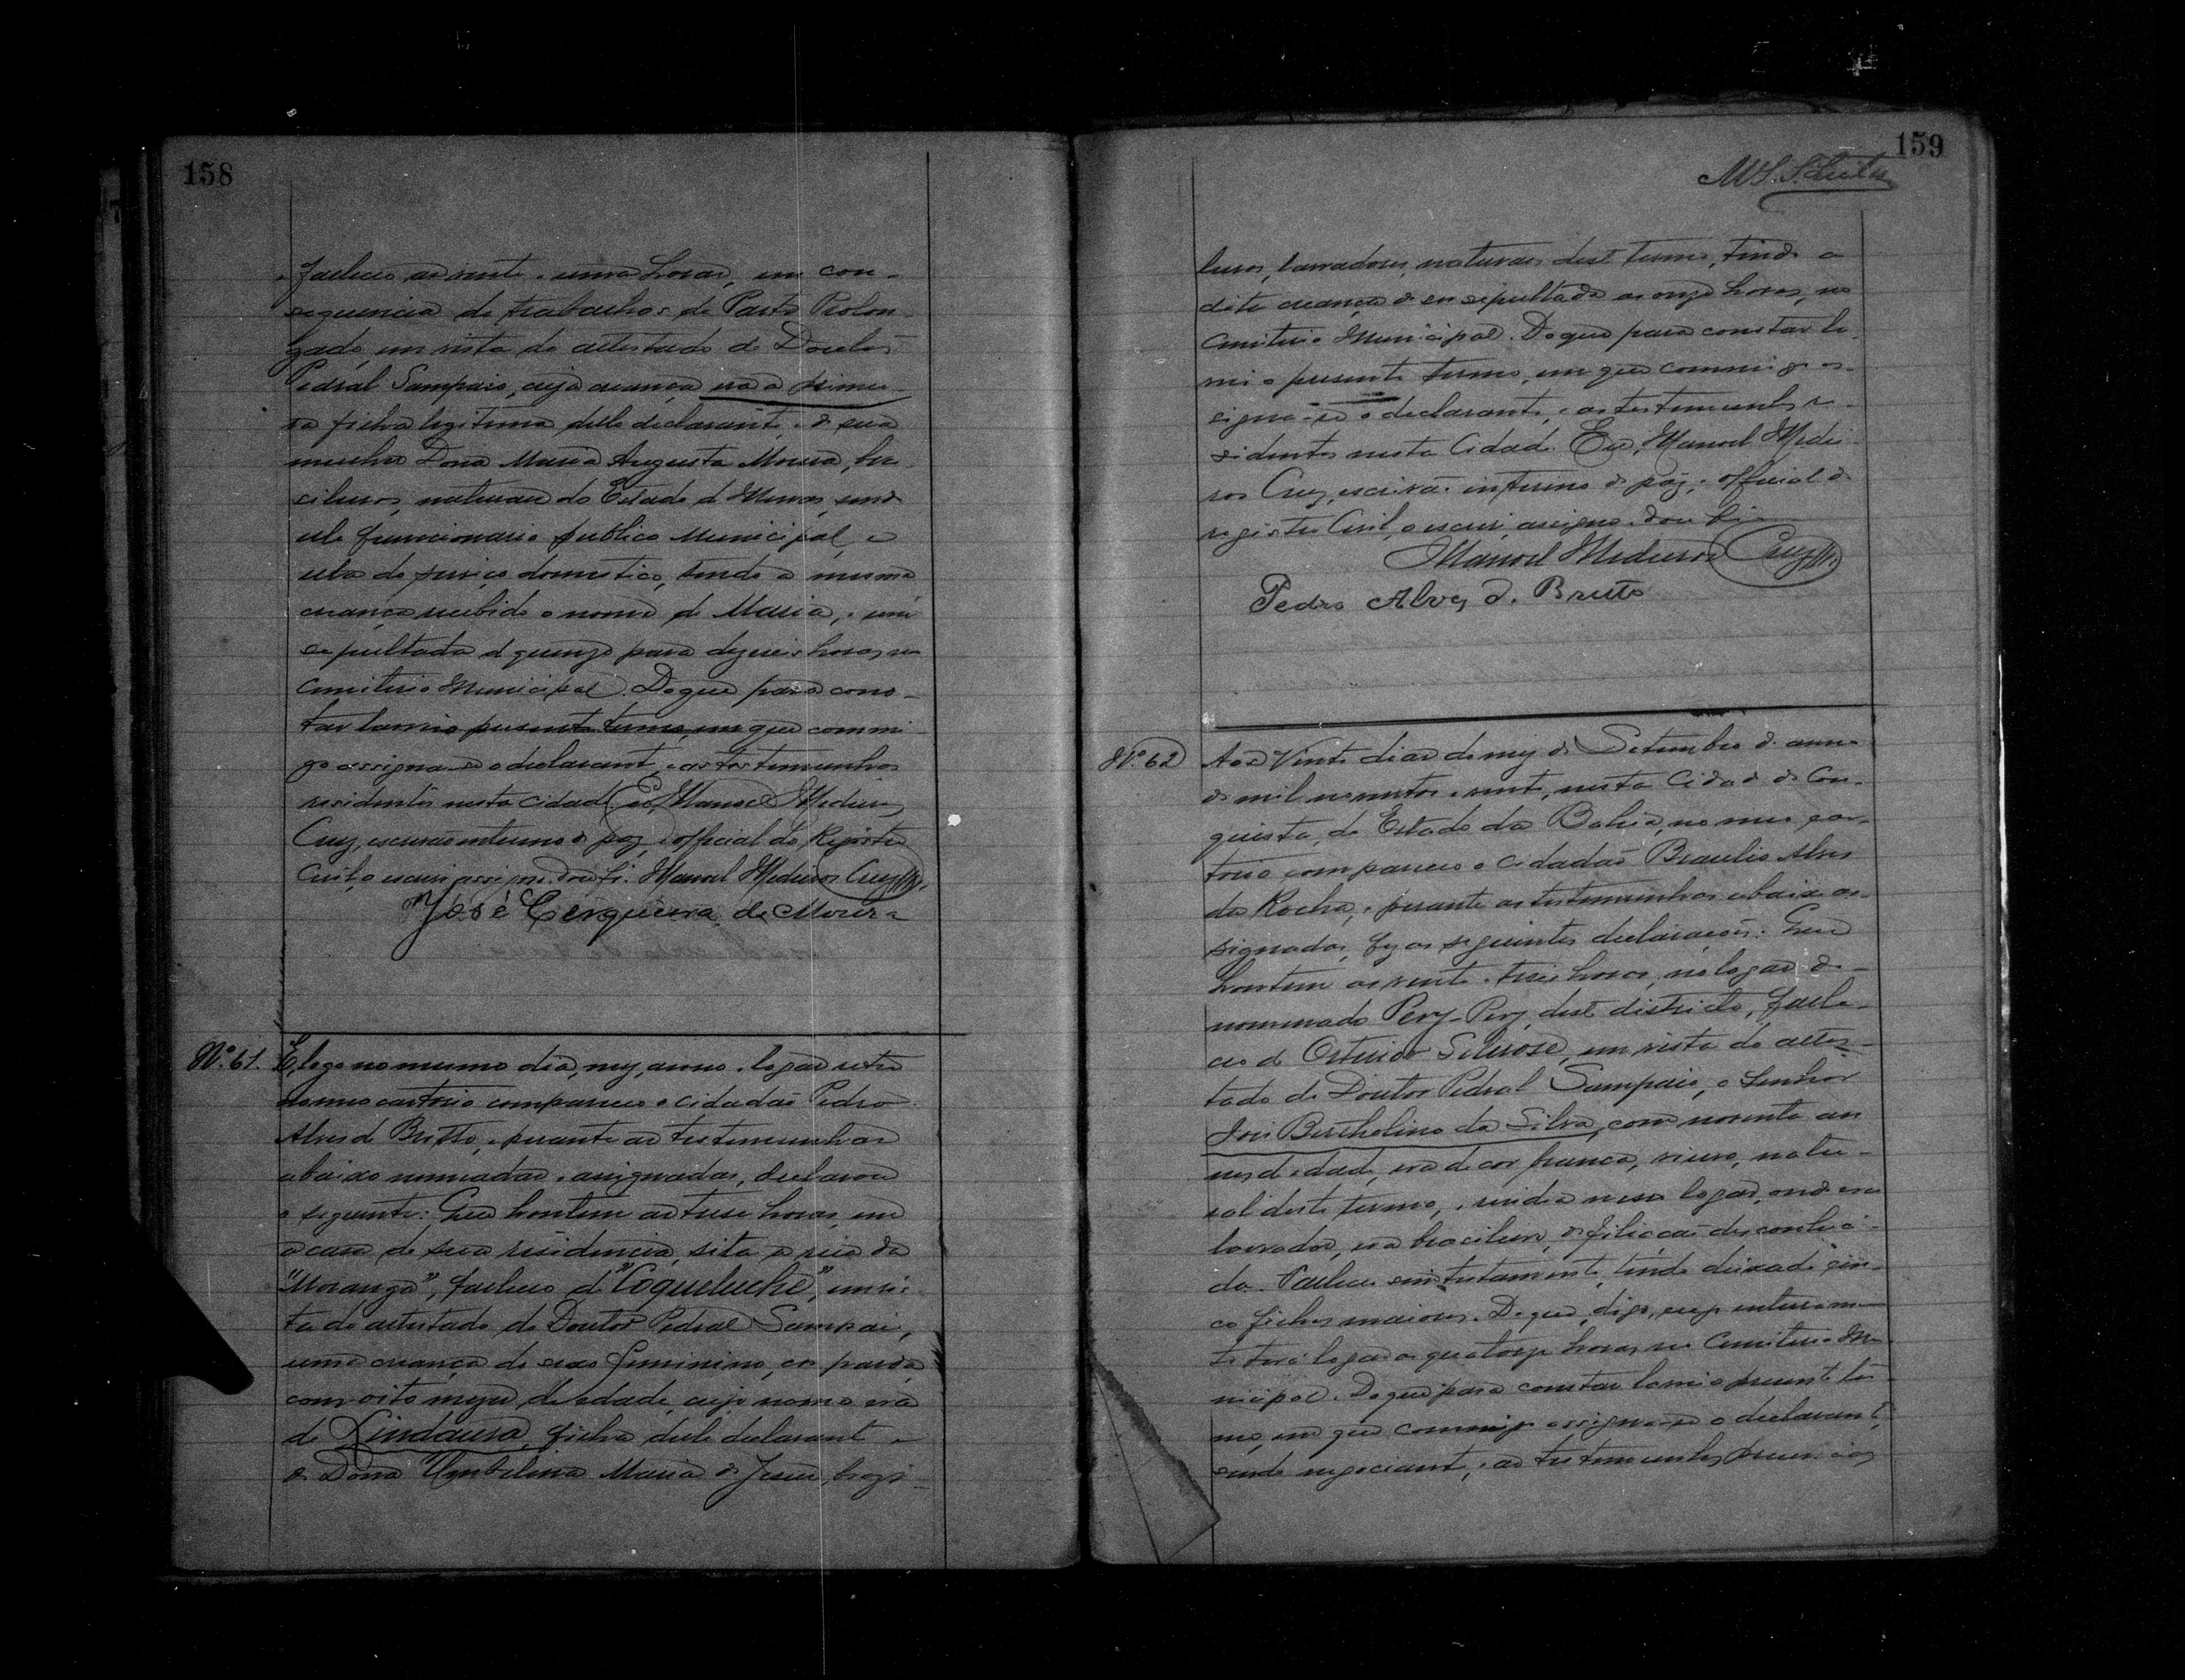 158
falleceu as vinte e uma horas, em con-
sequencia de trabalhos de Parto Prolon-
gado, em vista do attestado do Doutor
Pedral Sampaio, cuja creança era a primei-
ra filha legitima delle declarante e de sua
mulher Dona Maria Augusta Moura, bra-
sileiros, naturaes do Estado de Minas, sendo
elle funccionario publico Municipal, e
ella de serviço domestico, tendo a mesma
creança recebido o nome de Maria, e será
sepultada de quinze para dezeseis horas no
Cemiterio Municipal. Do que para cons-
tar lavrei o presente termo, em que commi-
go assigna-se o declarante, e as testemunhas
residentes nesta cidade. Eu, Manoel Medeiros
Cruz, escrivão interino de paz e official do Registro
Civil, o escrevi, assigno. dou fé. Manoel Medeiros Cruz
José Cerqueira de Moura
Nº 61. E, logo no mesmo dia, mez, anno e logar retro
no meu cartorio compareceu o cidadão Pedro
Alves de Britto, e perante as testemunhas
abaixo nomeadas e assignadas, declarou
o seguinte: Que hontem as treze horas, em
a casa de sua residencia, sita a rua da
"Moranga", falleceu de "Coqueluche", em vis-
ta do attestado do Doutor Pedral Sampaio,
uma creança do sexo feminino, cor parda,
com oito mezes de edade, cujo nome era
de Lindaura, filha delle declarante e
de Dona Umbelina Maria de Jesus, brazi-
159
leiros, lavradores, naturaes deste termo, tendo a
dita creança de ser sepultada as onze horas, no
Cemiterio Municipal. Do que para constar la-
vrei o presente termo, em que commigo as-
signa-se o declarante, e as testemunhas re-
sidentes nesta Cidade. Eu, Manoel Medei-
ros Cruz, escrivão interino de paz, e official do
registro Civil, o escrevi, assigno. dou fé
Manoel Medeiros Cruz
Pedro Alves de Britto
Nº 62 Aos Vinte dias do mez de Setembro do anno
de mil novecentos e vinte, nesta Cidade de Con-
quista, do Estado da Bahia, no meu car-
torio compareceu o cidadão Braulio Alves
da Rocha, e perante as testemunhas abaixo as-
signadas, fez as seguintes declarações: Que
hontem as vinte e tres horas, no logar de-
nominado Pery-Pery, deste districto, falle-
ceu de Arterio Sclerose, em vista do attes-
tado do Doutor Pedral Sampaio, o Senhor
José Bercholino da Silva, com noventa an
nos de edade, era de cor branca, viuvo, natu-
ral deste termo, e residia nesse logar, onde era
lavrador, era brazileiro, de filiação desconheci-
da. Falleceu sem testamento, tendo deixado cin-
co filhos maiores. Do que, digo, cujo enterramen
to terá logar as quatorze horas no Cemiterio Mu
nicipal. Do que para constar lavrei o presente ter-
mo, em que commigo assigna-se o declarante,
sendo negociante, e as testemunhas presenciaes